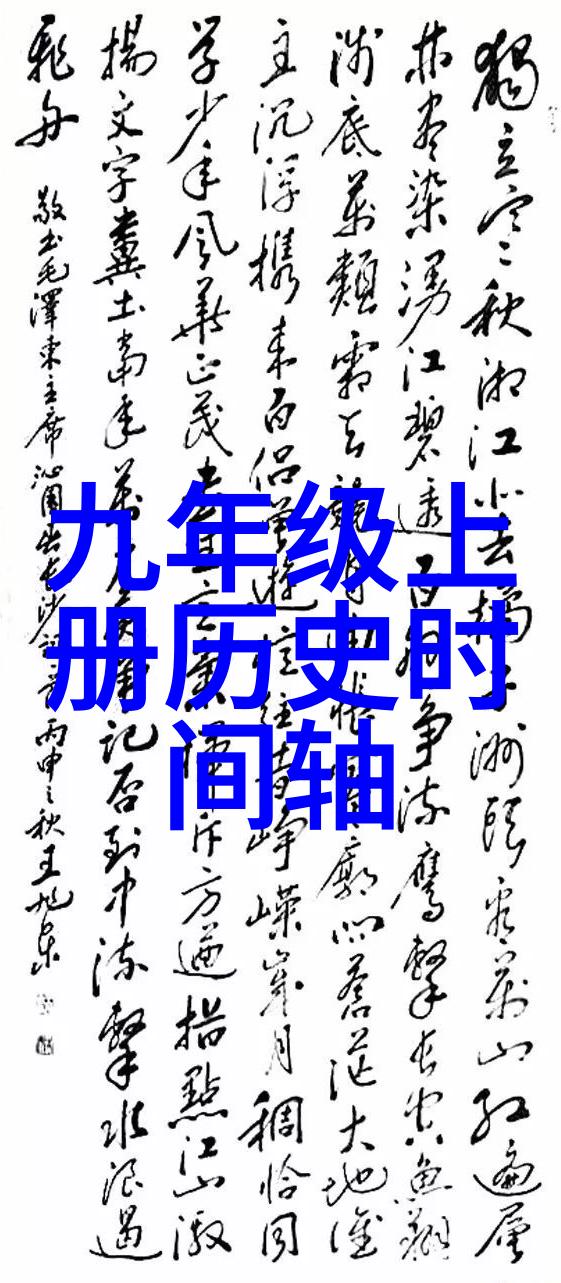 九年级上
册历史时
间轴
獨立寒秋湘江北去橘子洲頭看萬山紅遍層
林尽染漫江碧透百舸争流鷹擊長空魚翔
淺底萬類霜天競自由悵寥廓问蒼茫大地誰
主沉浮携来百侣曾遊忆往昔峥嵘歲月稠恰同
学少年風華正茂書生意氣揮斥方遒指點江山激
揚文字糞土當年萬户侯曾记否到中流擊水浪遏
飛舟
敬书毛澤東主席沁園春長沙词
丙申之秋王旭